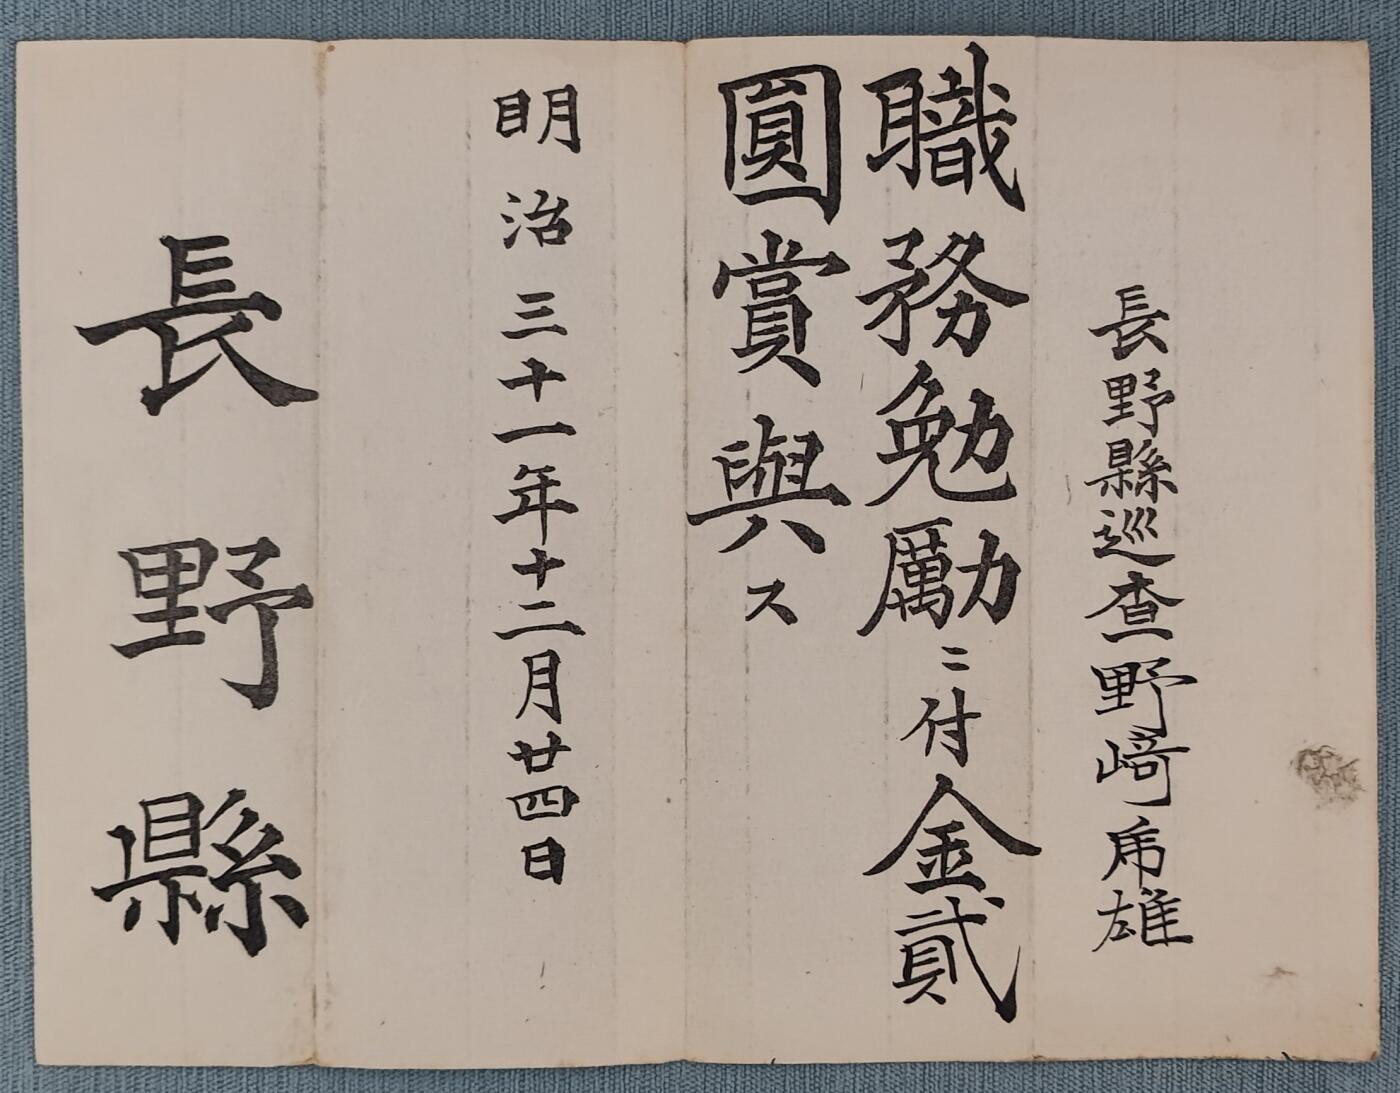 長野縣巡査野﨑乕雄
職務勉勵ニ付金貳
圓賞與ス
明治三十一年十二月廿四日
長野縣